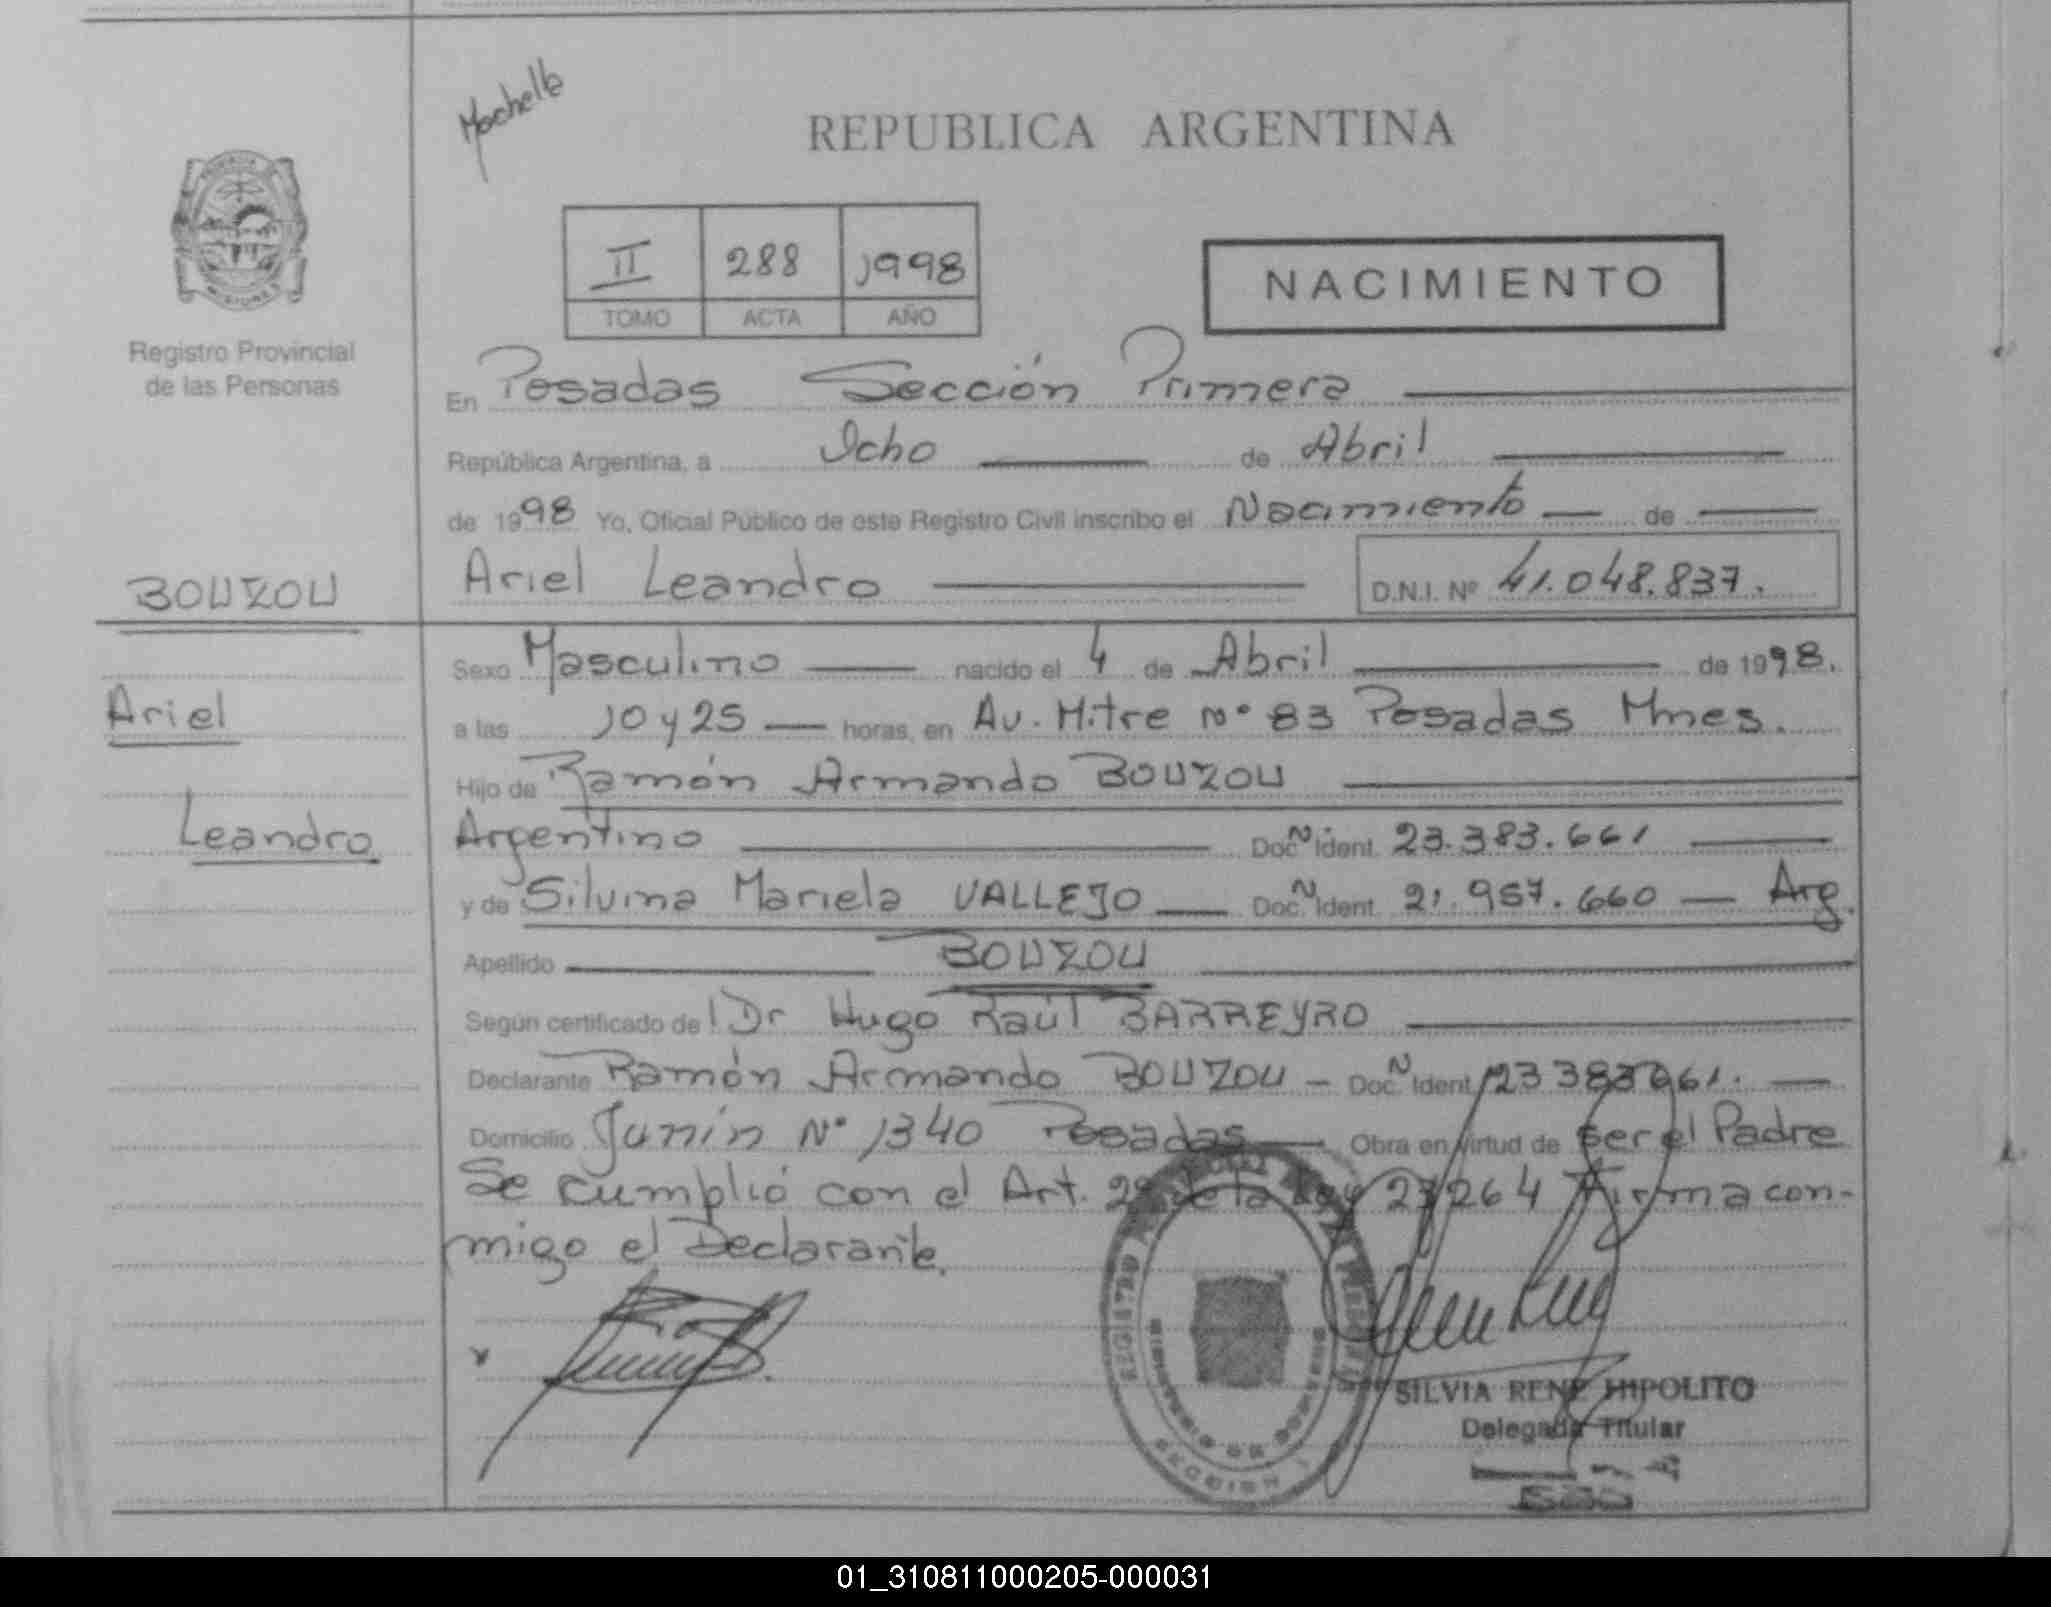 Mochello
REPUBLICA ARGENTINA
II 288 1998
TOMO ACTA AÑO
NACIMIENTO
MISIONES
Registro Provincial
de las Personas
En Posadas Sección Primera
República Argentina, a Ocho de Abril
de 1998 Yo, Oficial Público de este Registro Civil inscribo el Nacimiento de
BOUZOU
Ariel Leandro D.N.I. Nº 41.048.837.
Sexo Masculino nacido el 4 de Abril de 1998.
Ariel
a las 10 y 25 horas, en Av. Mitre nº 83 Posadas Mnes.
Hijo de Ramón Armando BOUZOU
Leandro
Argentino Doc. N Ident. 23.383.661
y de Silvina Mariela VALLEJO Doc. N Ident. 21.957.660 Arg.
Apellido BOUZOU
Según certificado de l Dr Hugo Raúl BARREYRO
Declarante Ramón Armando BOUZOU - Doc. N Ident. 23 383661.
Domicilio Junín Nº 1340 Posadas Obra en virtud de ser el Padre
Se cumplió con el Art. de la Ley 23264 Firma con-
migo el Declarante.
SILVIA RENE HIPOLITO
Delegada Titular
01_310811000205-000031